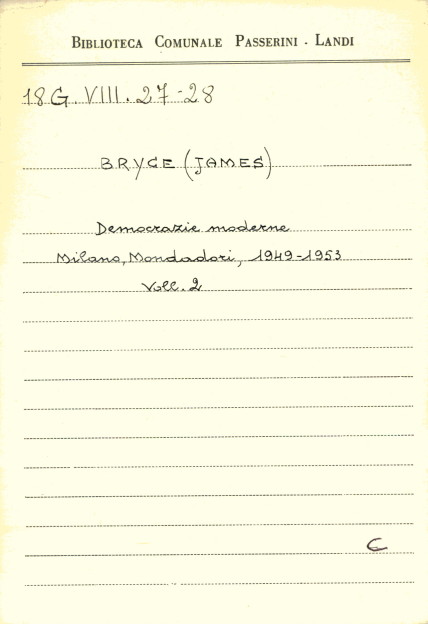 BIBLIOTECA COMUNALE PASSERINI - LANDI
18G. VIII. 27-28
BRYCE (JAMES)
Democrazie moderne
Milano, Mondadori, 1949-1953
Voll. 2
C